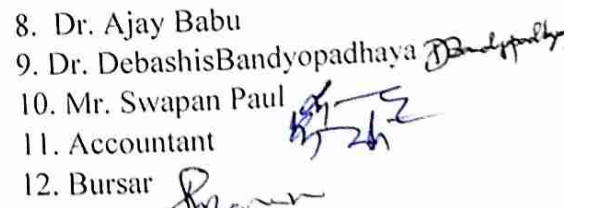 8. Dr. Ajay Babu
9. Dr. DebashisBandyopadhaya DBandyopadhya
10. Mr. Swapan Paul
11. Accountant
12. Bursar